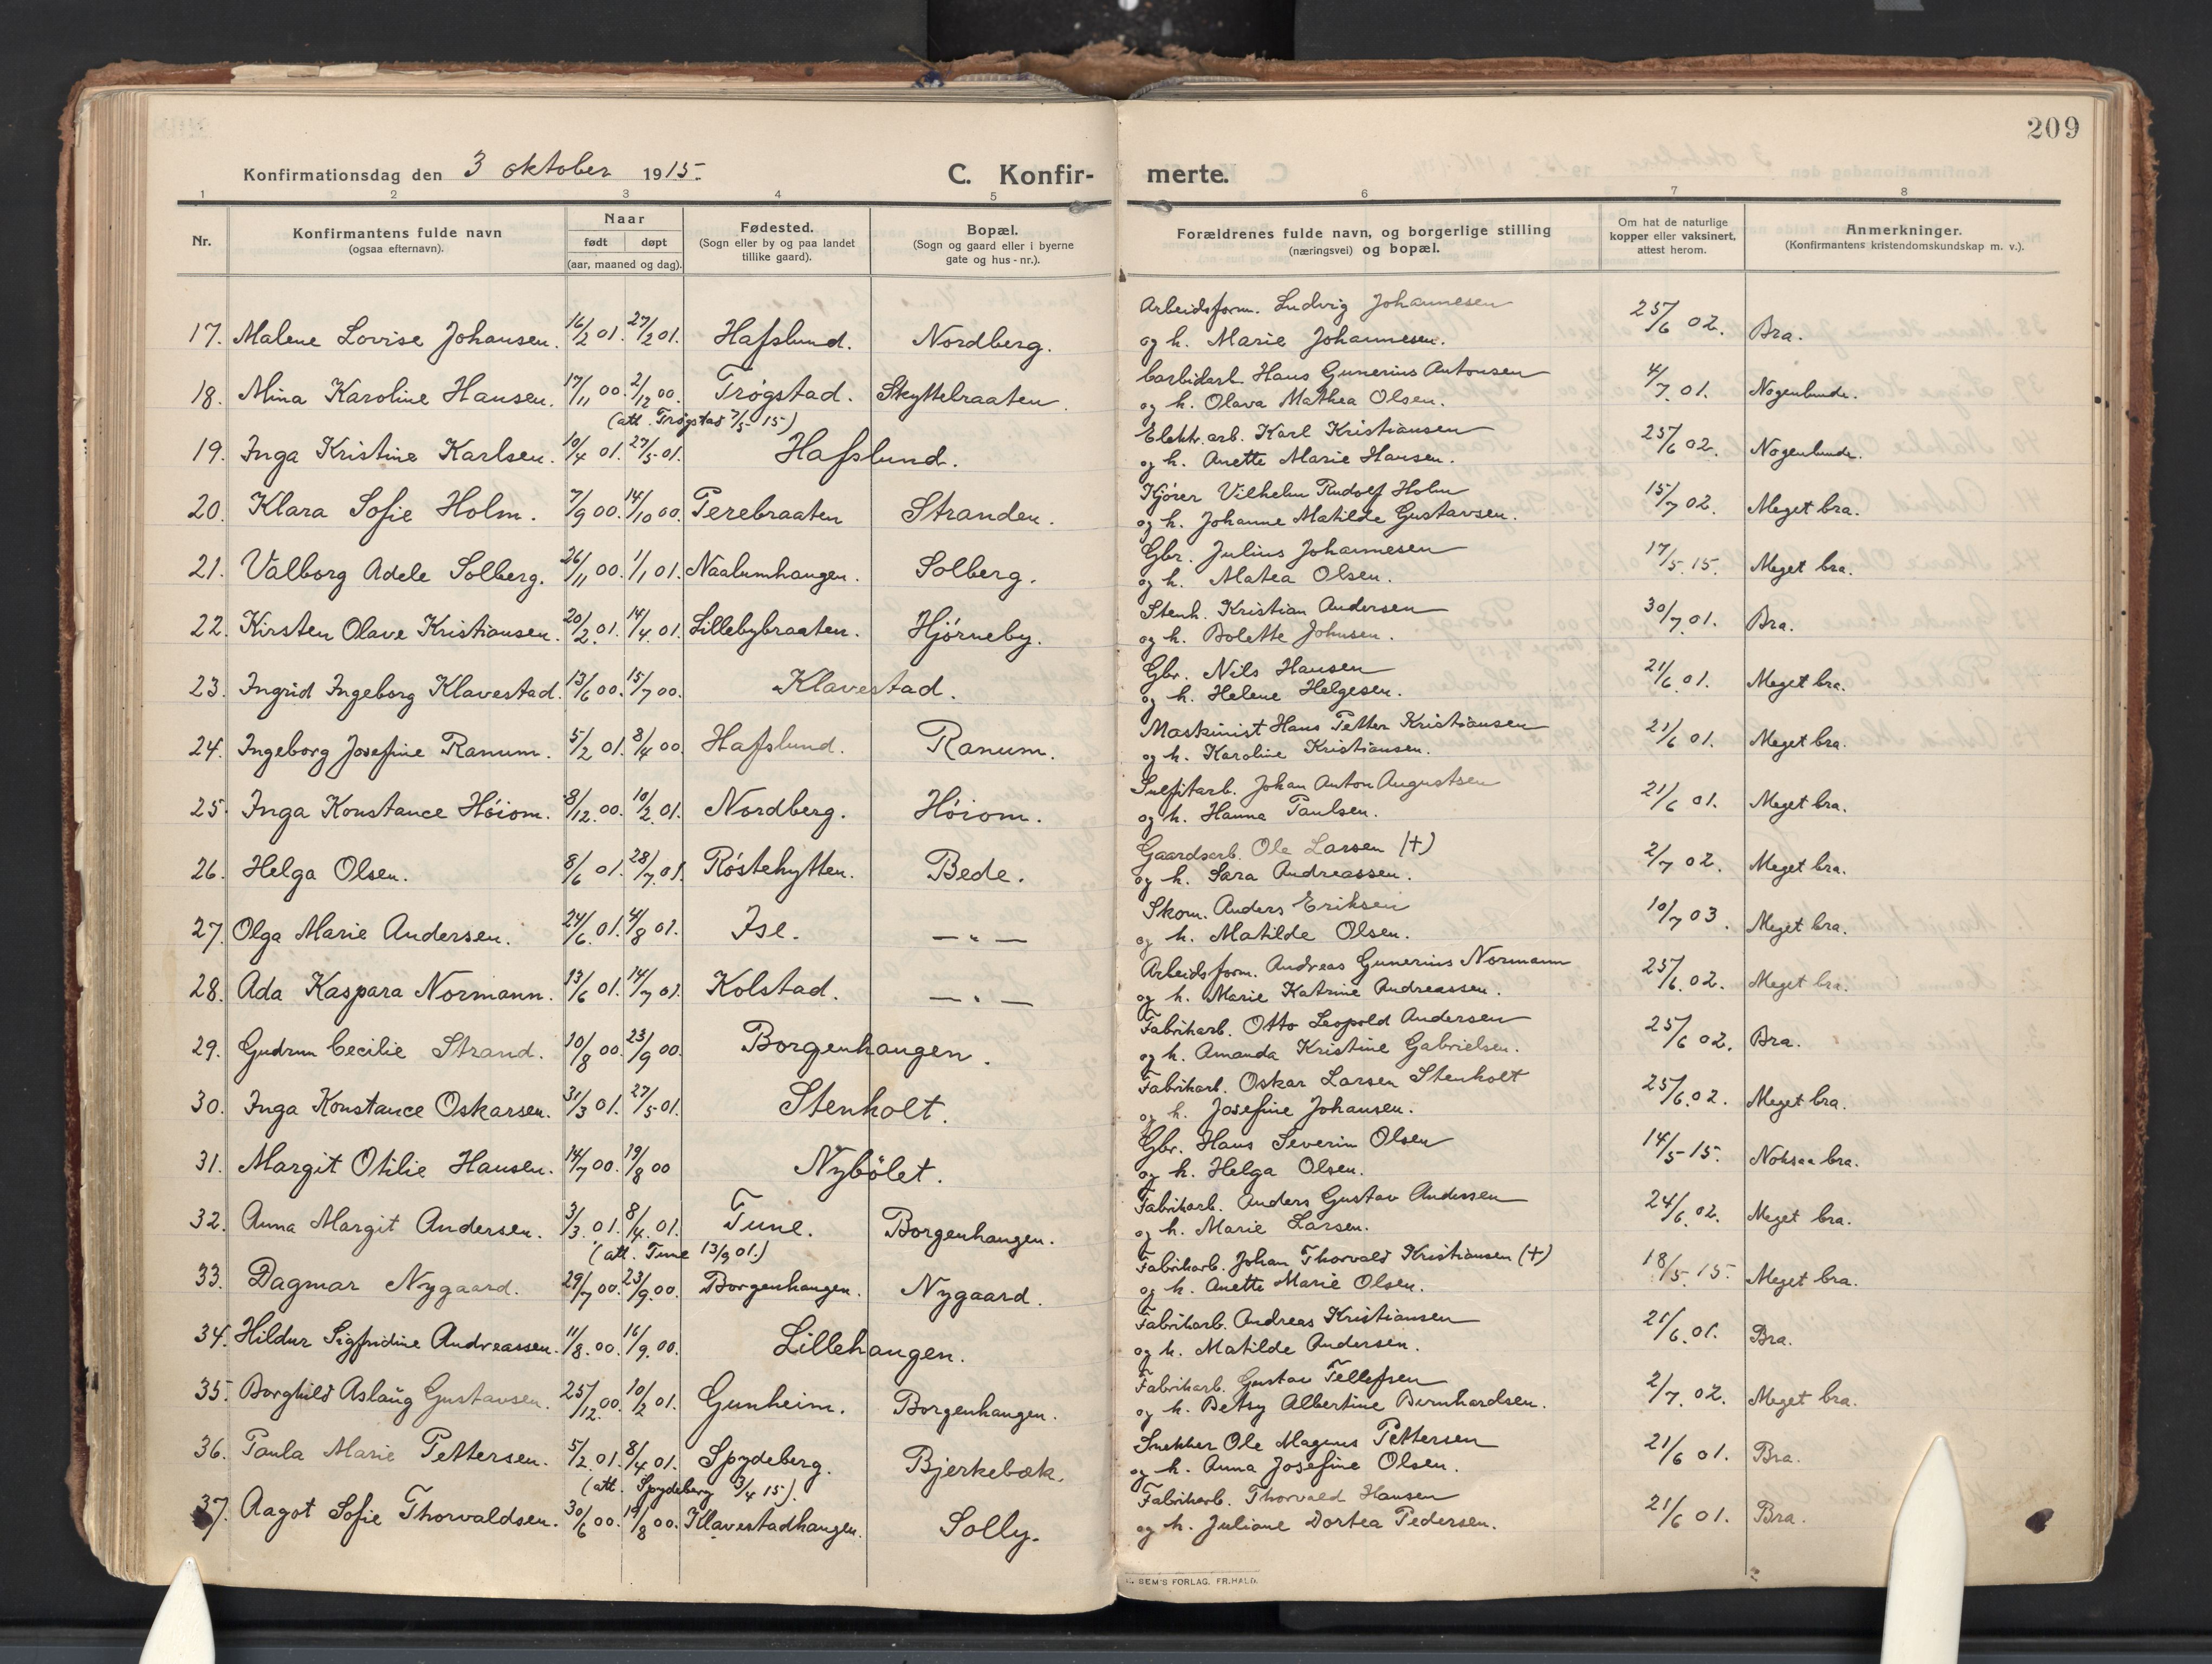 209
Konfirmationsdag den 3 oktober 1915.
C. Konfir- merte.
1 2 3 4 5 6 7 8
Nr.
Konfirmantens fulde navn
(ogsaa efternavn).
Naar
født døpt
(aar, maaned og dag).
Fødested.
(Sogn eller by og paa landet
tillike gaard).
Bopæl.
(Sogn og gaard eller i byerne
gate og hus-nr.).
Forældrenes fulde navn, og borgerlige stilling
(næringsvei) og bopæl.
Om hat de naturlige
kopper eller vaksinert,
attest herom.
Anmerkninger.
(Konfirmantens kristendomskundskap m. v.).
Arbeidsform. Ludvig Johannesen
17. Malene Lovise Johansen. 16/2 01. 27/2 01. Hafslund. Nordberg. og h. Marie Johannesen. 25/6 02. Bra.
Carbidarb. Hans Gunerius Antonsen
18. Mina Karoline Hansen. 17/11 00. 2/12 00. Trøgstad. Skyttebraaten. og h. Olava Mathea Olsen. 4/7 01. Nogenlunde.
(att. Trøgstad 7/5 15)
Elektr. arb. Karl Kristiansen
19. Inga Kristine Karlsen. 10/4 01. 27/5 01. Hafslund. og h. Anette Marie Hansen. 25/6 02. Nogenlunde.
Kjører Vilhelm Rudolf Holm
20. Klara Sofie Holm. 7/9 00. 14/10 00. Perebraaten Stranden. og h. Johanne Matilde Gustavsen. 15/7 02. Meget bra.
Gbr. Julius Johannesen
21. Valborg Adele Solberg. 26/11 00. 1/1 01. Naalumhaugen. Solberg. og h. Matea Olsen. 17/5. 15. Meget bra.
Stenh. Kristian Andersen
22. Kirsten Olave Kristiansen. 20/2. 01. 14/4 01. Lillebybraaten. Hjørneby. og h. Bolette Johnsen. 30/7 01. Bra.
Gbr. Nils Hansen
23. Ingrid Ingeborg Klavestad. 13/6 00. 15/7 00. Klavestad. og h. Helene Helgesen. 21/6 01. Meget bra.
Maskinist Hans Petter Kristiansen
24. Ingeborg Josefine Ranum. 5/2 01. 8/4 00. Hafslund. Ranum. og h. Karoline Kristiansen. 21/6 01. Meget bra.
Sulfitarb. Johan Anton Augustsen
25. Inga Konstance Høiom. 8/12. 00. 10/2. 01. Nordberg. Høiom. og h. Hanna Paulsen. 21/6 01. Meget bra.
Gaardsarb. Ole Larsen (+)
26. Helga Olsen. 8/6 01. 28/7. 01. Røstehytten. Bede. og h. Sara Andreassen. 2/7 02. Meget bra.
Skom. Anders Eriksen
27. Olga Marie Andersen. 24/6. 01. 4/8 01. Ise. — " — og h. Matilde Olsen. 10/7 03. Meget bra.
Arbeidsform. Andreas Gunerius Normann
28. Ada Kaspara Normann. 13/6 01. 14/7 01. Kolstad. — " — og h. Marie Katrine Andreassen. 25/6. 02. Meget bra.
Fabrikarb. Otto Leopold Andersen
29. Gudrun Cecilie Strand. 10/8 00. 23/9 00. Borgenhaugen. og h. Amanda Kristine Gabrielsen. 25/6 02. Bra.
Fabrikarb. Oskar Larsen Stenholt
30. Inga Konstance Oskarsen. 31/3 01. 27/5 01. Stenholt. og h. Josefine Johansen. 25/6. 02. Meget bra.
Gbr. Hans Severin Olsen
31. Margit Otilie Hansen. 14/7 00. 19/8 00 Nybølet. og h. Helga Olsen. 14/5 15. Noksaa bra.
Fabrikarb. Anders Gustav Andersen
32. Anna Margit Andersen. 3/3. 01. 8/4. 01. Tune. Borgenhaugen. og h. Marie Larsen. 24/6. 02. Meget bra.
(att. Tune 13/9 01.)
Fabrikarb. Johan Thorvald Kristiansen (+)
33. Dagmar Nygaard. 29/7 00. 23/9. 00. Borgenhaugen. Nygaard. og h. Anette Marie Olsen. 18/5. 15. Meget bra.
Fabrikarb. Andreas Kristiansen
34. Hildur Sigfridine Andreassen. 11/8. 00. 16/9. 00. Lillehaugen. og h. Matilde Andersen. 21/6. 01. Bra.
Fabrikarb. Gustav Tellefsen
35. Borghild Aslaug Gustavsen. 25/12. 00. 10/2 01. Gunheim. Borgenhaugen. og h. Betsy Albertine Bernhardsen. 2/7. 02. Meget bra.
Snekker Ole Magnus Pettersen
36. Paula Marie Pettersen. 5/2. 01. 8/4 01. Spydeberg. Bjerkebæk. og h. Anna Josefine Olsen. 21/6 01. Bra.
(att. Spydeberg 3/4 15).
Fabrikarb. Thorvald Hansen
37. Aagot Sofie Thorvaldsen. 30/6 00. 19/8 00. Klavestadhaugen. Solly. og h. Juliane Dortea Pedersen. 21/6 01. Bra.
SEM'S FORLAG. FR.HALD.